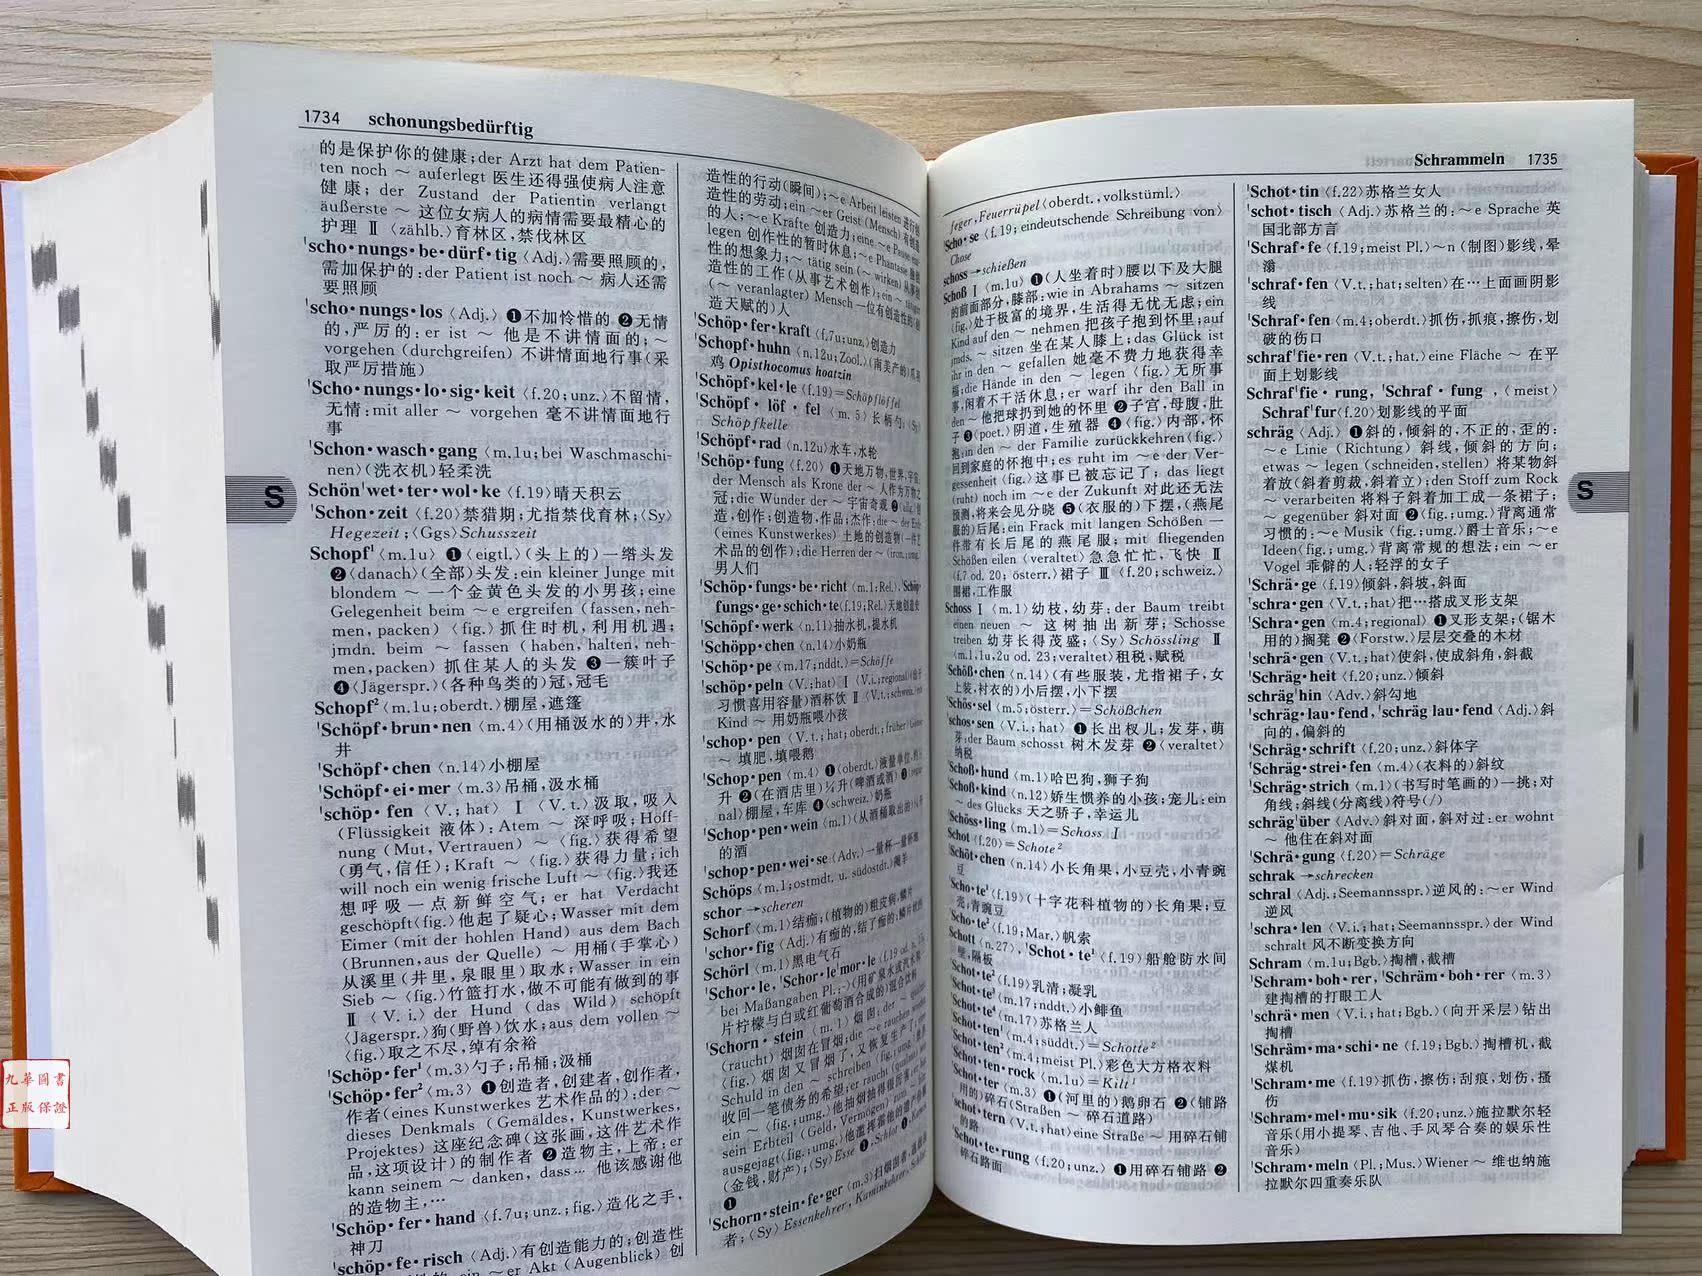 1734 schonungsbedürftig
的是保护你的健康;der Arzt hat dem Patien-
ten noch ～ auferlegt 医生还得强使病人注意
健康; der Zustand der Patientin verlangt
äußerste ～ 这位女病人的病情需要最精心的
护理 Ⅱ〈zählb.〉育林区,禁伐林区
'scho·nungs·be·dürf·tig〈Adj.〉需要照顾的,
需加保护的:der Patient ist noch ～ 病人还需
要照顾
'scho·nungs·los〈Adj.〉❶不加怜惜的 ❷无情
的,严厉的:er ist ～ 他是不讲情面的;～
vorgehen (durchgreifen) 不讲情面地行事(采
取严厉措施)
'Scho·nungs·lo·sig·keit〈f.20;unz.〉不留情,
无情:mit aller ～ vorgehen 毫不讲情面地行
事
'Schon·wasch·gang〈m.1u;bei Waschmaschi-
nen〉(洗衣机)轻柔洗
Schön'wet·ter·wol·ke〈f.19〉晴天积云
'Schon·zeit〈f.20〉禁猎期;尤指禁伐育林;〈Sy〉
Hegezeit;〈Ggs〉Schusszeit
Schopf¹〈m.1u〉❶〈eigtl.〉(头上的)一绺头发
❷〈danach〉(全部)头发:ein kleiner Junge mit
blondem ～ 一个金黄色头发的小男孩;eine
Gelegenheit beim ～e ergreifen (fassen, neh-
men, packen)〈fig.〉抓住时机,利用机遇;
jmdn. beim ～ fassen (haben, halten, neh-
men,packen) 抓住某人的头发 ❸一簇叶子
❹〈Jägerspr.〉(各种鸟类的)冠,冠毛
Schopf²〈m.1u;oberdt.〉棚屋,遮篷
'Schöpf·brun·nen〈m.4〉(用桶汲水的)井,水
井
'Schöpf·chen〈n.14〉小棚屋
'Schöpf·ei·mer〈m.3〉吊桶,汲水桶
'schöp·fen〈V.;hat〉Ⅰ〈V.t.〉汲取,吸入
(Flüssigkeit 液体); Atem ～ 深呼吸; Hoff-
nung (Mut, Vertrauen) ～〈fig.〉获得希望
(勇气,信任); Kraft ～〈fig.〉获得力量;ich
will noch ein wenig frische Luft ～〈fig.〉我还
想呼吸一点新鲜空气; er hat Verdacht
geschöpft〈fig.〉他起了疑心; Wasser mit dem
Eimer (mit der hohlen Hand) aus dem Bach
(Brunnen,aus der Quelle) ～ 用桶(手掌心)
从溪里(井里,泉眼里)取水; Wasser in ein
Sieb ～〈fig.〉竹篮打水,做不可能有做到的事
Ⅱ〈V.i.〉der Hund (das Wild) schöpft
〈Jägerspr.〉狗(野兽)饮水;aus dem vollen ～
〈fig.〉取之不尽,绰有余裕
'Schöp·fer¹〈m.3〉勺子;吊桶;汲桶
'Schöp·fer²〈m.3〉❶创造者,创建者,创作者,
作者(eines Kunstwerkes 艺术作品的):der ～
dieses Denkmals (Gemäldes, Kunstwerkes,
Projektes) 这座纪念碑(这张画,这件艺术作
品,这项设计)的制作者 ❷造物主,上帝:er
kann seinem ～ danken, dass… 他该感谢他
的造物主,…
'Schöp·fer·hand〈f.7u;unz.;fig.〉造化之手,
神刀
'schöp·fe·risch〈Adj.〉有创造能力的;创造性
ein ～er Akt (Augenblick) 创
造性的行动(瞬间);～e Arbeit leisten 进行创
造性的劳动;ein ～er Geist (Mensch) 有创造
的人;～e Kräfte 创造力;eine ～e Pause
legen 创作性的暂时休息;～e Phantasie
性的想象力;～ tätig sein (～ wirken) 从事创
造性的工作(从事艺术创作);ein ～
(～ veranlagter) Mensch 一位有创造性的(创
造天赋的)人
'Schöp·fer·kraft〈f.7u;unz.〉创造力
'Schopf·huhn〈n.12u;Zool.〉(南美产的)爪羽
鸡 Opisthocomus hoatzin
'Schöpf·kel·le〈f.19〉=Schöpflöffel
'Schöpf·löf·fel〈m.5〉长柄勺;〈Sy〉
Schöpfkelle
'Schöpf·rad〈n.12u〉水车,水轮
'Schöp·fung〈f.20〉❶天地万物,世界,宇宙:
der Mensch als Krone der ～ 人作为万物之
冠;die Wunder der ～ 宇宙奇观 ❷〈allg.〉创
造,创作;创造物,作品;杰作:die ～ der Erde
(eines Kunstwerkes) 土地的创造物(一件艺
术品的创作);die Herren der ～〈iron.;umg.〉
男人们
'Schöp·fungs·be·richt〈m.1;Rel.〉, 'Schöp·
fungs·ge·schich·te〈f.19;Rel.〉天地创造史
'Schöpf·werk〈n.11〉抽水机,提水机
'Schöpp·chen〈n.14〉小奶瓶
'Schöp·pe〈m.17;nddt.〉=Schöffe
'schöp·peln〈V.;hat〉Ⅰ〈V.i.;regional〉(指于
习惯喜用容量)酒杯饮 Ⅱ〈V.t.;schweiz.〉ein
Kind ～ 用奶瓶喂小孩
'schop·pen〈V.t.;hat;oberdt.;früher〉Gänse
～ 填肥,填喂鹅
'Schop·pen〈m.4〉❶〈oberdt.〉液量单位,约½
升 ❷(在酒店里)¼升(啤酒或酒) ❸〈regio-
nal〉棚屋,车库 ❹〈schweiz.〉奶瓶
'Schop·pen·wein〈m.1〉(从酒桶取出的)
的酒
'schop·pen·wei·se〈Adv.〉一量杯一量杯地
Schöps〈m.1;ostmdt. u. südostdt.〉阉羊
schor →scheren
Schorf〈m.1〉结痂;(植物的)粗皮病,鳞片
'schor·fig〈Adj.〉有痂的,结了痂的;鳞片状的
Schörl〈m.1〉黑电气石
'Schor·le, 'Schor·le'mor·le〈f.19 od. n.15,
bei Maßangaben Pl.:-〉(用矿泉水或汽水和
片柠檬与白或红葡萄酒合成的)混合饮料
'Schorn·stein〈m.1〉烟囱:der ～
(raucht) 烟囱在冒烟;die ～e rauchen
〈fig.〉烟囱又冒烟了,又恢复生产了
Schuld in den ～ schreiben〈fig.;umg.〉
收回一笔债务的希望;er raucht (qualmt) wie
ein ～〈fig.;umg.〉他抽烟抽得很厉害;
sein Erbteil (Geld, Vermögen) zum ～
ausgejagt〈fig.;umg.〉他滥挥霍他的遗产份额
(金钱,财产);〈Sy〉Esse ❶,Schlot ❶,Kamin
❶
'Schorn·stein·fe·ger〈m.3〉扫烟囱者,通烟囱
者;〈Sy〉Essenkehrer, Kaminkehrer, Schlot-
Schrammeln 1735
feger,Feuerrüpel〈oberdt., volkstüml.〉
'Scho·se〈f.19;eindeutschende Schreibung von〉
Chose
schoss →schießen
Schoß Ⅰ〈m.1u〉❶(人坐着时)腰以下及大腿
的前面部分,膝部:wie in Abrahams ～ sitzen
〈fig.〉处于极富的境界,生活得无忧无虑;ein
Kind auf den ～ nehmen 把孩子抱到怀里;auf
jmds. ～ sitzen 坐在某人膝上;das Glück ist
ihr in den ～ gefallen 她毫不费力地获得幸
福;die Hände in den ～ legen〈fig.〉无所事
事,闲着不干活休息;er warf ihr den Ball in
den ～ 他把球扔到她的怀里 ❷子宫,母腹,肚
子 ❸〈poet.〉阴道,生殖器 ❹〈fig.〉内部,怀
抱:in den ～ der Familie zurückkehren〈fig.〉
回到家庭的怀抱中;es ruht im ～e der Ver-
gessenheit〈fig.〉这事已被忘记了; das liegt
(ruht) noch im ～e der Zukunft 对此还无法
预测,将来会见分晓 ❺(衣服的)下摆,(燕尾
服的)后尾:ein Frack mit langen Schößen 一
件带有长后尾的燕尾服; mit fliegenden
Schößen eilen〈veraltet〉急急忙忙,飞快 Ⅱ
〈f.7 od. 20; österr.〉裙子 Ⅲ〈f.20;schweiz.〉
围裙,工作服
Schoss Ⅰ〈m.1〉幼枝,幼芽: der Baum treibt
einen neuen ～ 这树抽出新芽; Schosse
treiben 幼芽长得茂盛;〈Sy〉Schössling Ⅱ
〈m.1,1u,2u od. 23;veraltet〉租税,赋税
'Schöß·chen〈n.14〉(有些服装,尤指裙子,女
上装,衬衣的)小后摆,小下摆
'Schös·sel〈m.5;österr.〉=Schößchen
'schos·sen〈V.i.;hat〉❶长出杈儿;发芽,萌
芽:der Baum schosst 树木发芽 ❷〈veraltet〉
纳税
'Schoß·hund〈m.1〉哈巴狗,狮子狗
'Schoß·kind〈n.12〉娇生惯养的小孩;宠儿:ein
～ des Glücks 天之骄子,幸运儿
'Schöss·ling〈m.1〉=Schoss Ⅰ
Schot〈f.20〉=Schote²
'Schöt·chen〈n.14〉小长角果,小豆壳,小青豌
豆
'Scho·te¹〈f.19〉(十字花科植物的)长角果;豆
壳;青豌豆
'Scho·te²〈f.19;Mar.〉帆索
Schott〈n.27〉, 'Schot·te¹〈f.19〉船舱防水间
壁,隔板
'Schot·te²〈f.19〉乳清;凝乳
'Schot·te³〈m.17;nddt.〉小鲱鱼
'Schot·te⁴〈m.17〉苏格兰人
'Schot·ten¹〈m.4;süddt.〉=Schotte²
'Schot·ten²〈m.4;meist Pl.〉彩色大方格衣料
'Schot·ten·rock〈m.1u〉=Kilt¹
'Schot·ter〈m.3〉❶(河里的)鹅卵石 ❷(铺路
用的)碎石(Straßen～ 碎石道路)
'schot·tern〈V.t.;hat〉eine Straße ～ 用碎石铺
的路
'Schot·te·rung〈f.20;unz.〉❶用碎石铺路 ❷
碎石路面
'Schot·tin〈f.22〉苏格兰女人
'schot·tisch〈Adj.〉苏格兰的:～e Sprache 英
国北部方言
'Schraf·fe〈f.19;meist Pl.〉～n (制图)影线,晕
滃
'schraf·fen〈V.t.;hat;selten〉在…上面画阴影
线
'Schraf·fen〈m.4;oberdt.〉抓伤,抓痕,擦伤,划
破的伤口
schraf'fie·ren〈V.t.;hat.〉eine Fläche ～ 在平
面上划影线
Schraf'fie·rung, 'Schraf·fung,〈meist〉
Schraf'fur〈f.20〉划影线的平面
schräg〈Adj.〉❶斜的,倾斜的,不正的,歪的:
～e Linie (Richtung) 斜线,倾斜的方向;
etwas ～ legen (schneiden,stellen) 将某物斜
着放(斜着剪裁,斜着立);den Stoff zum Rock
～ verarbeiten 将料子斜着加工成一条裙子;
～ gegenüber 斜对面 ❷〈fig.;umg.〉背离通常
习惯的:～e Musik〈fig.;umg.〉爵士音乐;～e
Ideen〈fig.;umg.〉背离常规的想法;ein ～er
Vogel 乖僻的人;轻浮的女子
'Schrä·ge〈f.19〉倾斜,斜坡,斜面
'schra·gen〈V.t.;hat〉把…搭成叉形支架
'Schra·gen〈m.4;regional〉❶叉形支架;(锯木
用的)搁凳 ❷〈Forstw.〉层层交叠的木材
'schrä·gen〈V.t.;hat〉使斜,使成斜角,斜截
'Schräg·heit〈f.20;unz.〉倾斜
schräg'hin〈Adv.〉斜勾地
'schräg·lau·fend, 'schräg lau·fend〈Adj.〉斜
向的,偏斜的
'Schräg·schrift〈f.20;unz.〉斜体字
'Schräg·strei·fen〈m.4〉(衣料的)斜纹
'Schräg·strich〈m.1〉(书写时笔画的)一挑;对
角线;斜线(分离线)符号(/)
schräg'über〈Adv.〉斜对面,斜对过:er wohnt
～ 他住在斜对面
'Schrä·gung〈f.20〉=Schräge
schrak →schrecken
schral〈Adj.;Seemannsspr.〉逆风的:～er Wind
逆风
'schra·len〈V.i.;hat;Seemannsspr.〉der Wind
schralt 风不断变换方向
Schram〈m.1u;Bgb.〉掏槽,截槽
'Schram·boh·rer, 'Schräm·boh·rer〈m.3〉
建掏槽的打眼工人
'schrä·men〈V.i.;hat;Bgb.〉(向开采层)钻出
掏槽
'Schräm·ma·schi·ne〈f.19;Bgb.〉掏槽机,截
煤机
'Schram·me〈f.19〉抓伤,擦伤;刮痕,划伤,搔
伤
'Schram·mel·mu·sik〈f.20;unz.〉施拉默尔轻
音乐(用小提琴、吉他、手风琴合奏的娱乐性
音乐)
'Schram·meln〈Pl.;Mus.〉Wiener ～ 维也纳施
拉默尔四重奏乐队
S
S
九華圖書
正版保證